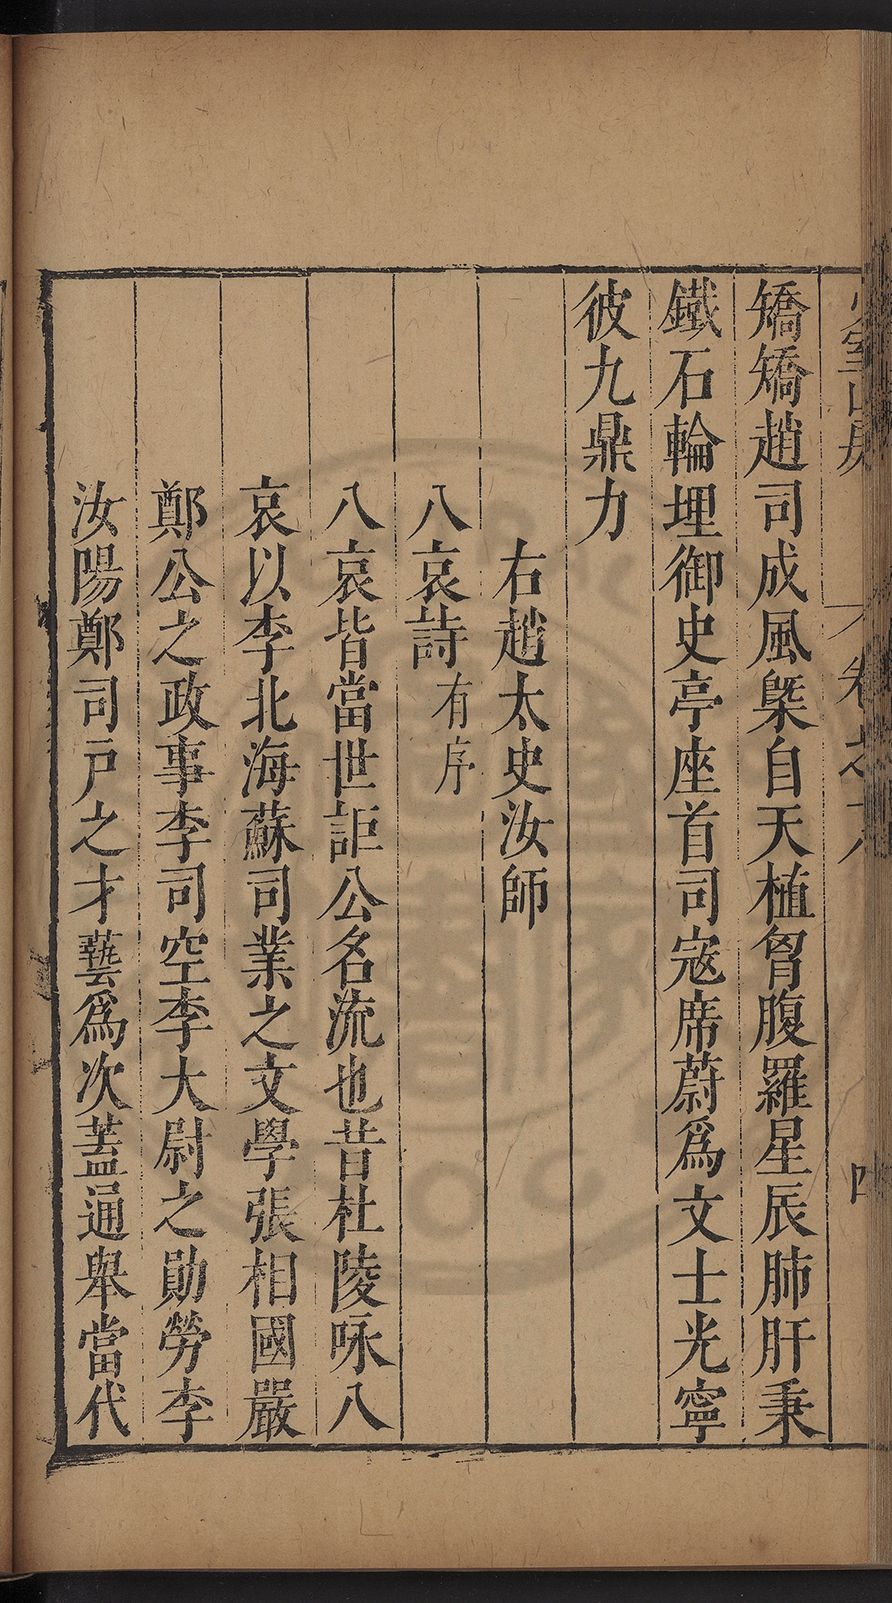 少室山房
卷之十八
矯矯趙司成風槩自天植胷腹羅星辰肺肝秉
鐵石輪埋御史亭座首司寇席蔚爲文士光寧
彼九鼎力
右趙太史汝師
八哀詩有序
八哀皆當世詎公名流也昔杜陵咏八
哀以李北海蘇司業之文學張相國嚴
鄭公之政事李司空李大尉之勛勞李
汝陽鄭司戸之才藝爲次葢通舉當代